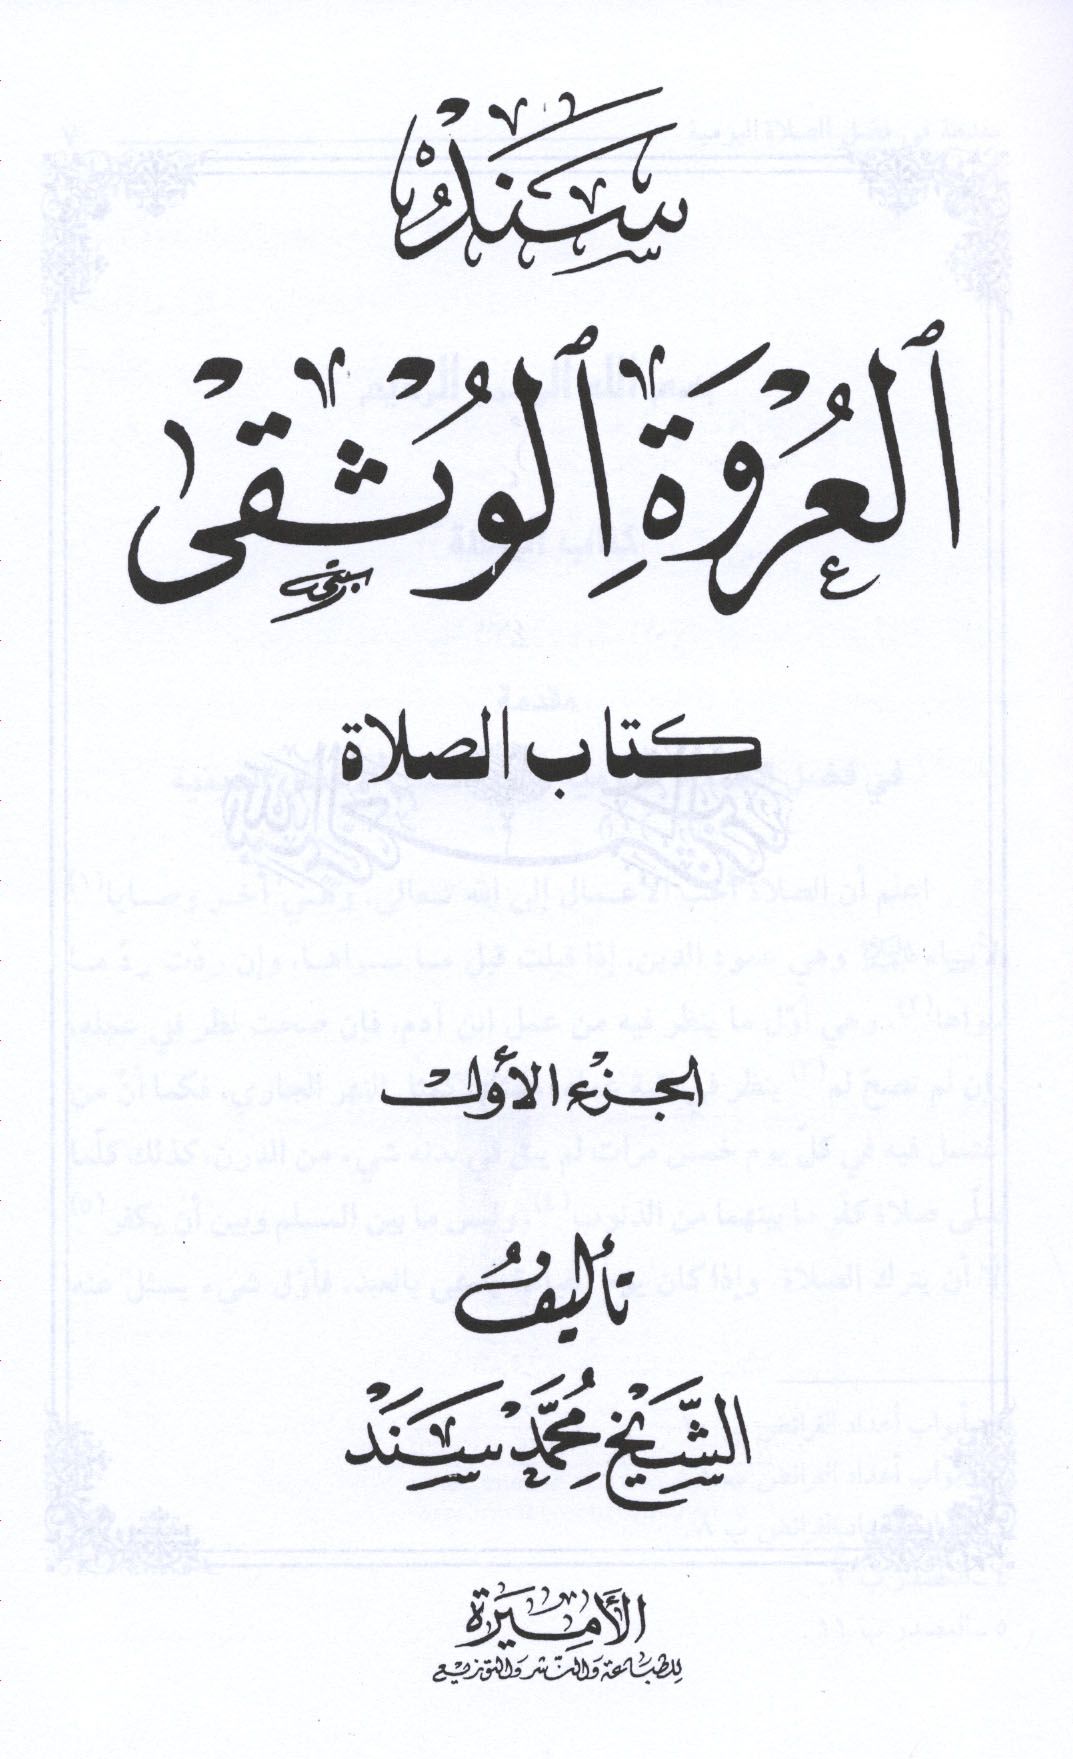 سَنَدُ
ٱلعُرْوَةِ ٱلوُثْقىٰ
كتاب الصلاة
الجزء الأول
تأليف
الشَّيْخ مُحَمَّد سَنَد
الأميرة
للطباعة والنشر والتوزيع